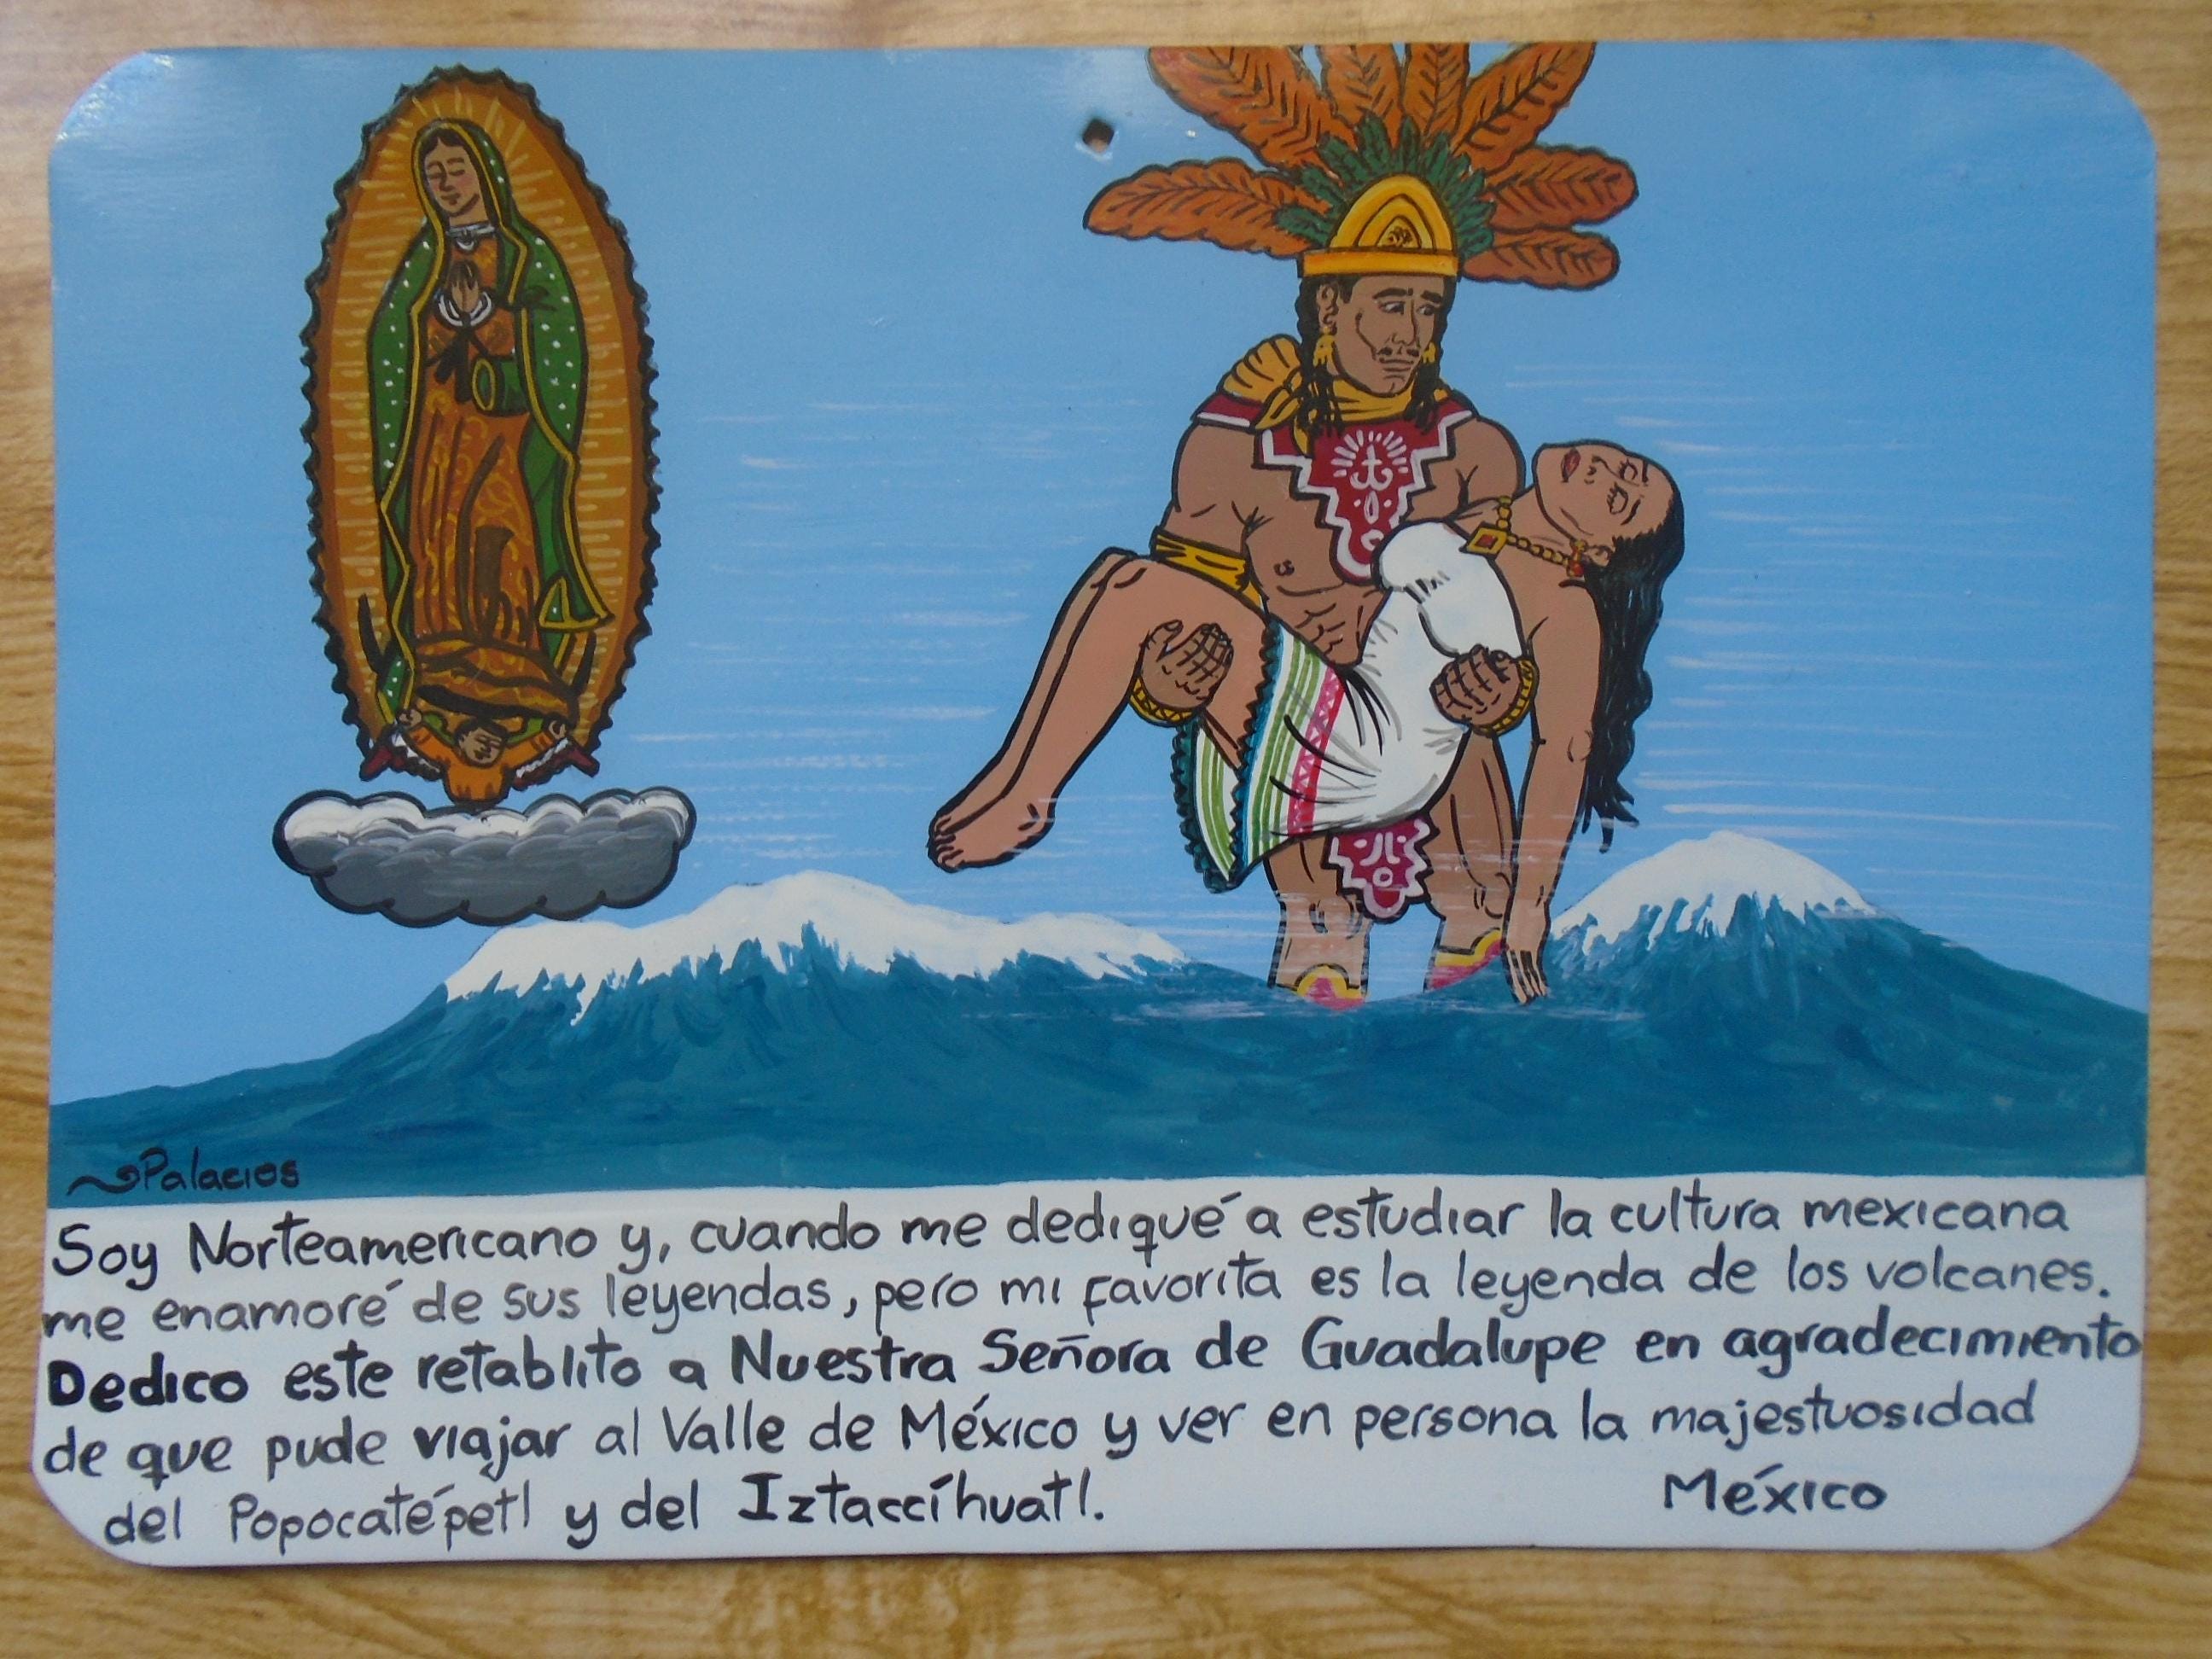 Palacios
Soy Norteamericano y, cuando me dediqué a estudiar la cultura mexicana
me enamoré de sus leyendas, pero mi favorita es la leyenda de los volcanes.
Dedico este retablito a Nuestra Señora de Guadalupe en agradecimiento
de que pude viajar al Valle de México y ver en persona la majestuosidad
del Popocatépetl y del Iztaccíhuatl. México